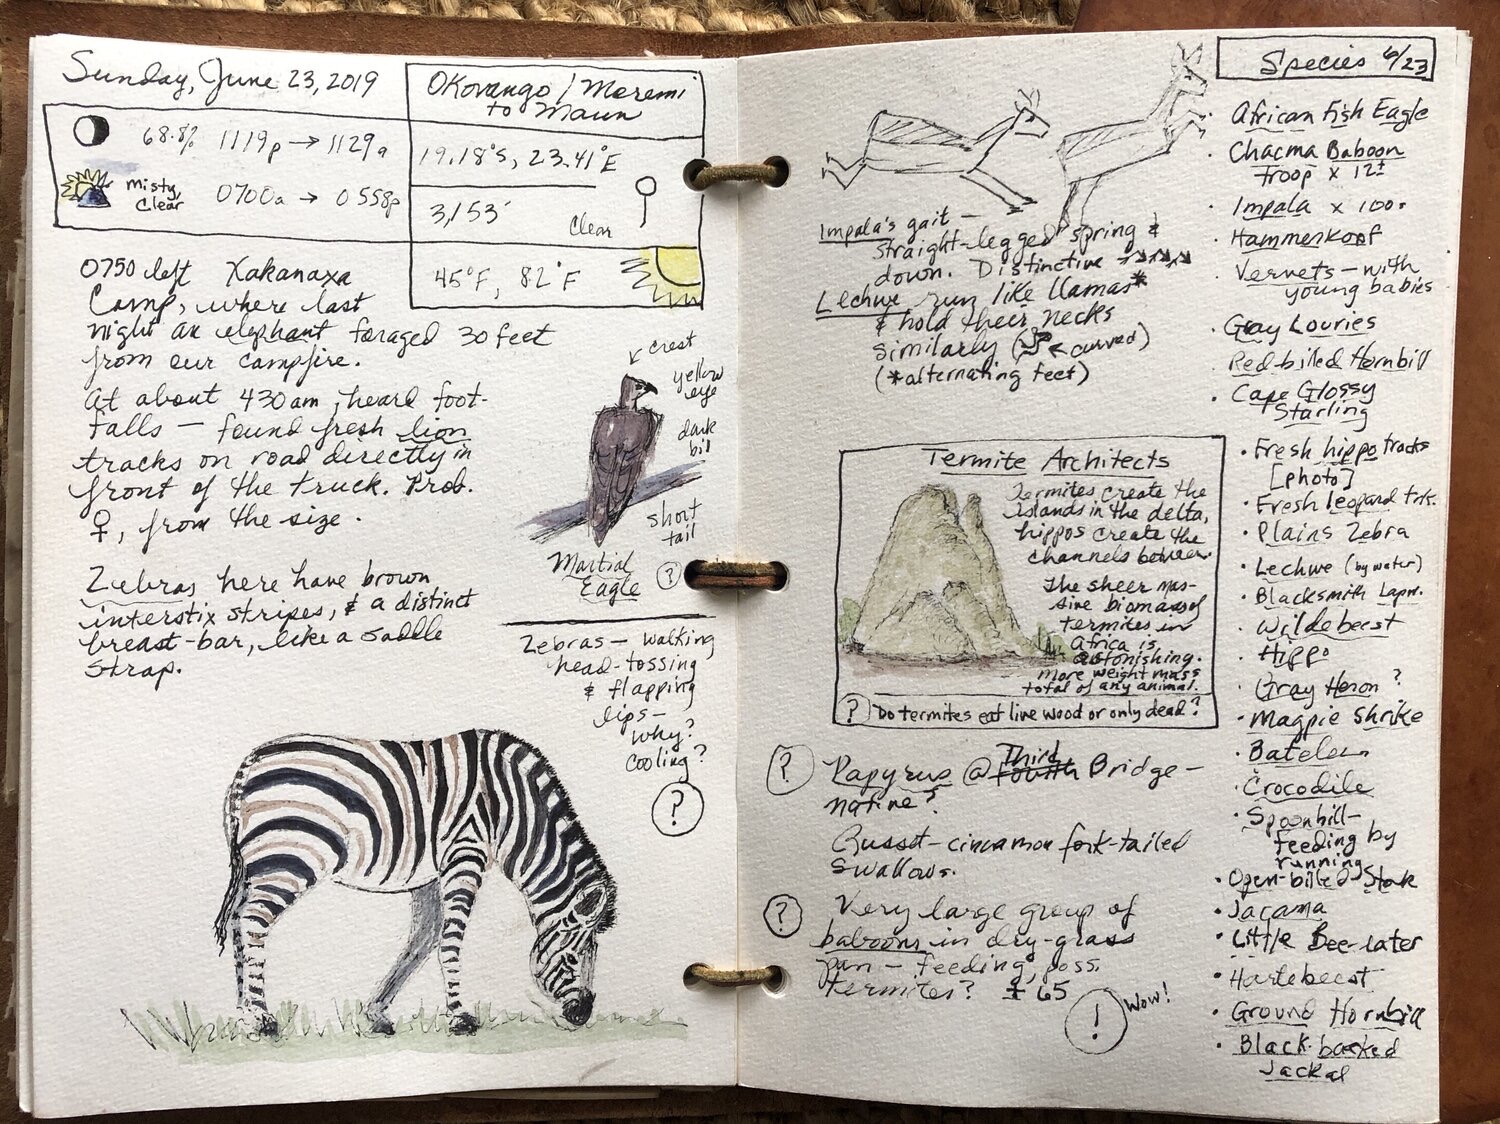 Sunday, June 23, 2019
Okovango / Moremi
to Maun
68.8% 1119p → 1129a
Misty,
Clear
0700a → 0558p
19.18°S, 23.41°E
3,153'
Clear
45°F, 82°F
0750 left Xakanaxa
Camp, where last
night an elephant foraged 30 feet
from our campfire.
At about 430am, heard foot-
falls — found fresh lion
tracks on road directly in
front of the truck. Prob.
♀, from the size.
Zebras here have brown
interstix stripes, & a distinct
breast-bar, like a saddle
strap.
crest
yellow
eye
dark
bil
short
tail
Martial
Eagle ?
Zebras — walking
head-tossing
& flapping
lips—
why?
Cooling?
?
Impala's gait —
straight-legged spring &
down. Distinctive
Lechwe run like llamas*
& hold their necks
similarly ( ← curved)
(*alternating feet)
Termite Architects
Termites create the
islands in the delta,
hippos create the
channels between.
The sheer mas-
sive biomass of
termites in
Africa is
astonishing.
More weight mass
total of any animal.
? Do termites eat live wood or only dead?
? Papyrus @ Third Fourth Bridge —
native?
Russet-cinnamon fork-tailed
swallows.
? Very large group of
baboons in dry-grass
pan — feeding, poss.
termites? ± 65
! Wow!
Species 6/23
· African Fish Eagle
· Chacma Baboon
troop x 12±
· Impala x 100s
· Hammerkopf
· Vervets — with
young babies
· Gray Louries
· Red-billed Hornbill
· Cape Glossy
Starling
· Fresh hippo tracks
[photo]
· Fresh leopard trk.
· Plains Zebra
· Lechwe (by water)
· Blacksmith Lapw.
· Wildebeest
· Hippo
· Gray Heron ?
· Magpie Shrike
· Bateleur
· Crocodile
· Spoonbill—
feeding by
running
· Open-billed Stork
· Jacana
· Little Bee-eater
· Hartebeest
· Ground Hornbill
· Black-backed
Jackal